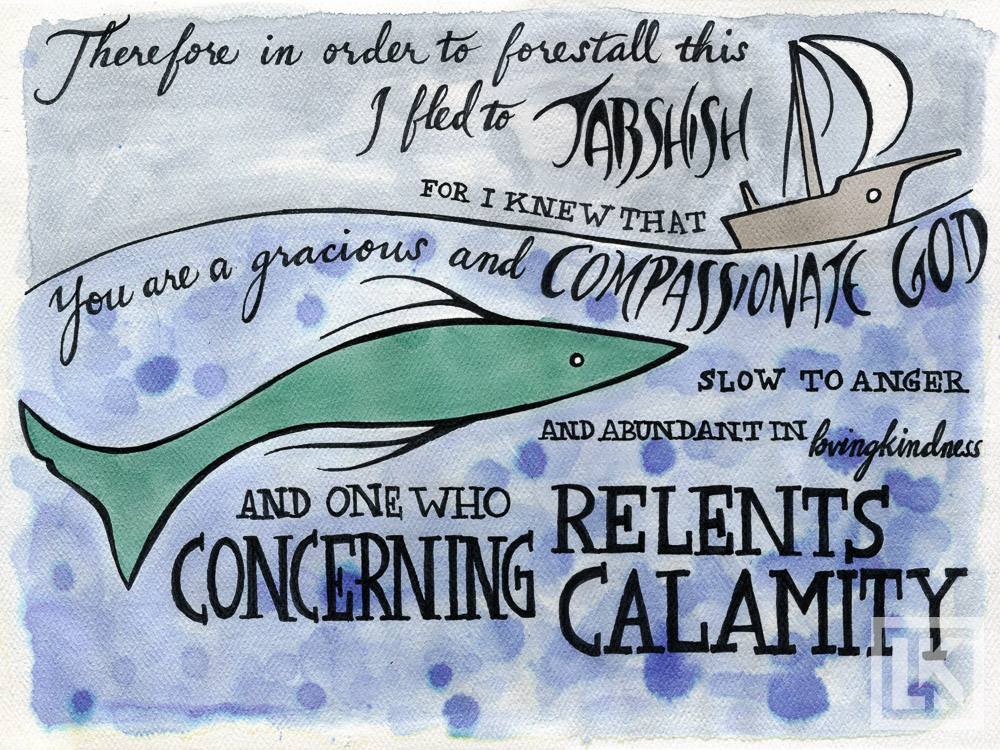 Therefore in order to forestall this
I fled to TARSHISH
FOR I KNEW THAT
You are a gracious and COMPASSIONATE GOD
SLOW TO ANGER
AND ABUNDANT IN lovingkindness
AND ONE WHO RELENTS
CONCERNING CALAMITY
LK